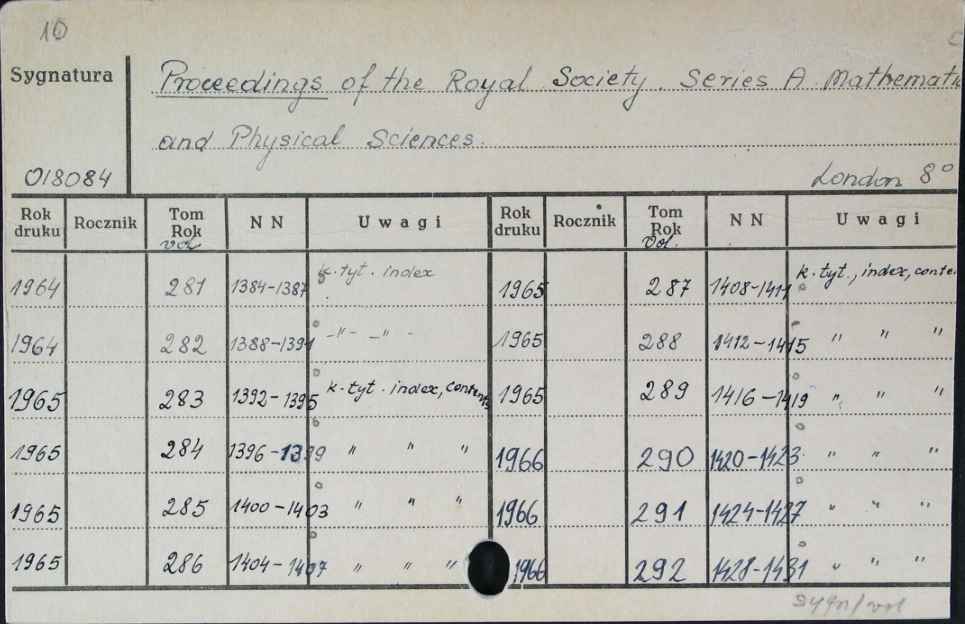 10
Sygnatura Proceedings of the Royal Society. Series A Mathemati
and Physical Sciences.
018084 London 8°
Rok druku Rocznik Tom Rok vol N N Uwagi Rok druku Rocznik Tom Rok Vol. N N Uwagi
1964 281 1384-1387 k. tyt. index 1965 287 1408-1411 k. tyt., index, conte
1964 282 1388-1391 -"- -"- 1965 288 1412-1415 " " "
1965 283 1392-1395 k. tyt. index, contents 1965 289 1416-1419 " " "
1965 284 1396-1399 " " " 1966 290 1420-1423 " " "
1965 285 1400-1403 " " " 1966 291 1424-1427 " " "
1965 286 1404-1407 " " " 1966 292 1428-1431 " " "
Sygn/vol